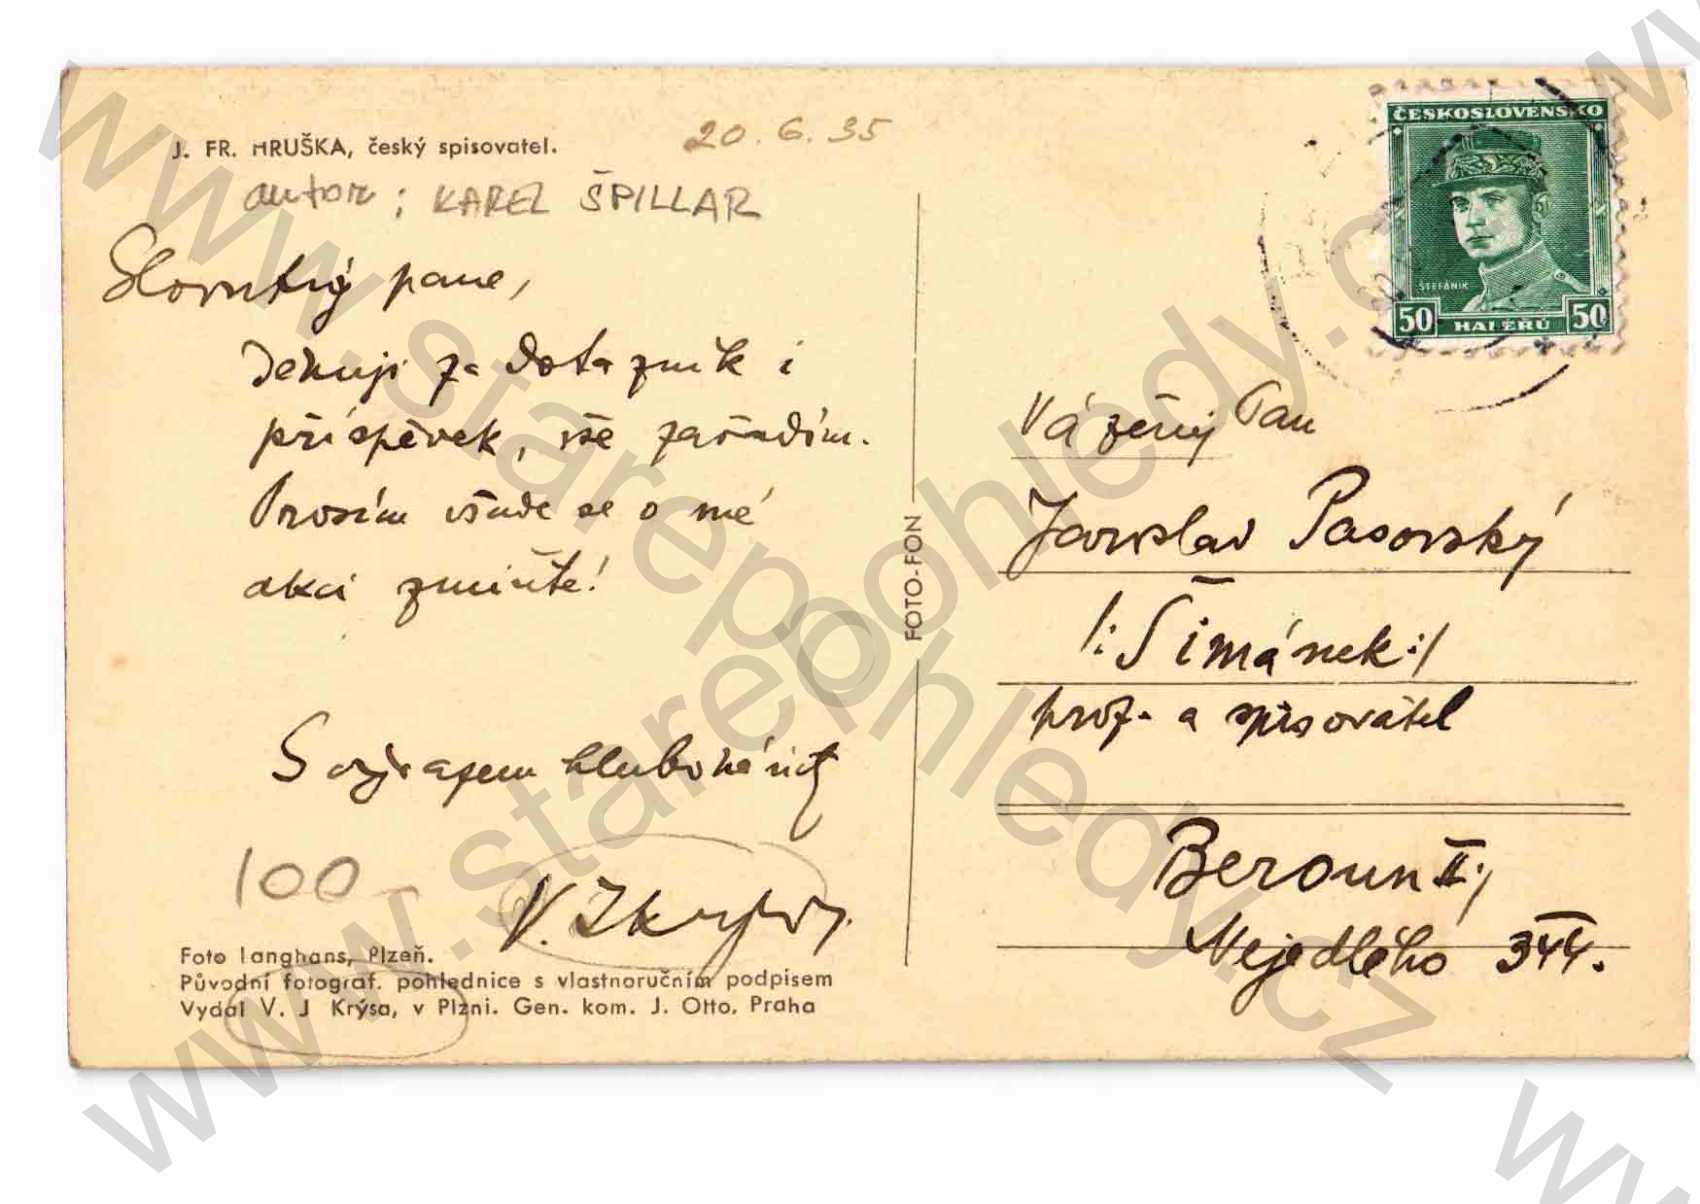 J. FR. HRUŠKA, český spisovatel.
20. 6. 35
autor: KAREL ŠPILLAR
Slovutný pane,
Děkuji za dotazník i
příspěvek, vše zařadím.
Prosím všude se o mé
akci zmiňte!
S výrazem hluboké úcty
100 -
V.
Foto Langhans, Plzeň.
Původní fotograf. pohlednice s vlastnoručním podpisem
Vydal V. J Krýsa, v Plzni. Gen. kom. J. Otto, Praha
FOTO-FON
ČESKOSLOVENSKO
ŠTEFÁNIK
50 HALÉŘŮ 50
Vážený Pan
Jaroslav Pasovský
/: Šimánek :/
prof. a spisovatel
Beroun II./
Nejedlého 344.
www.starepohledy.cz
www.starepohledy.cz